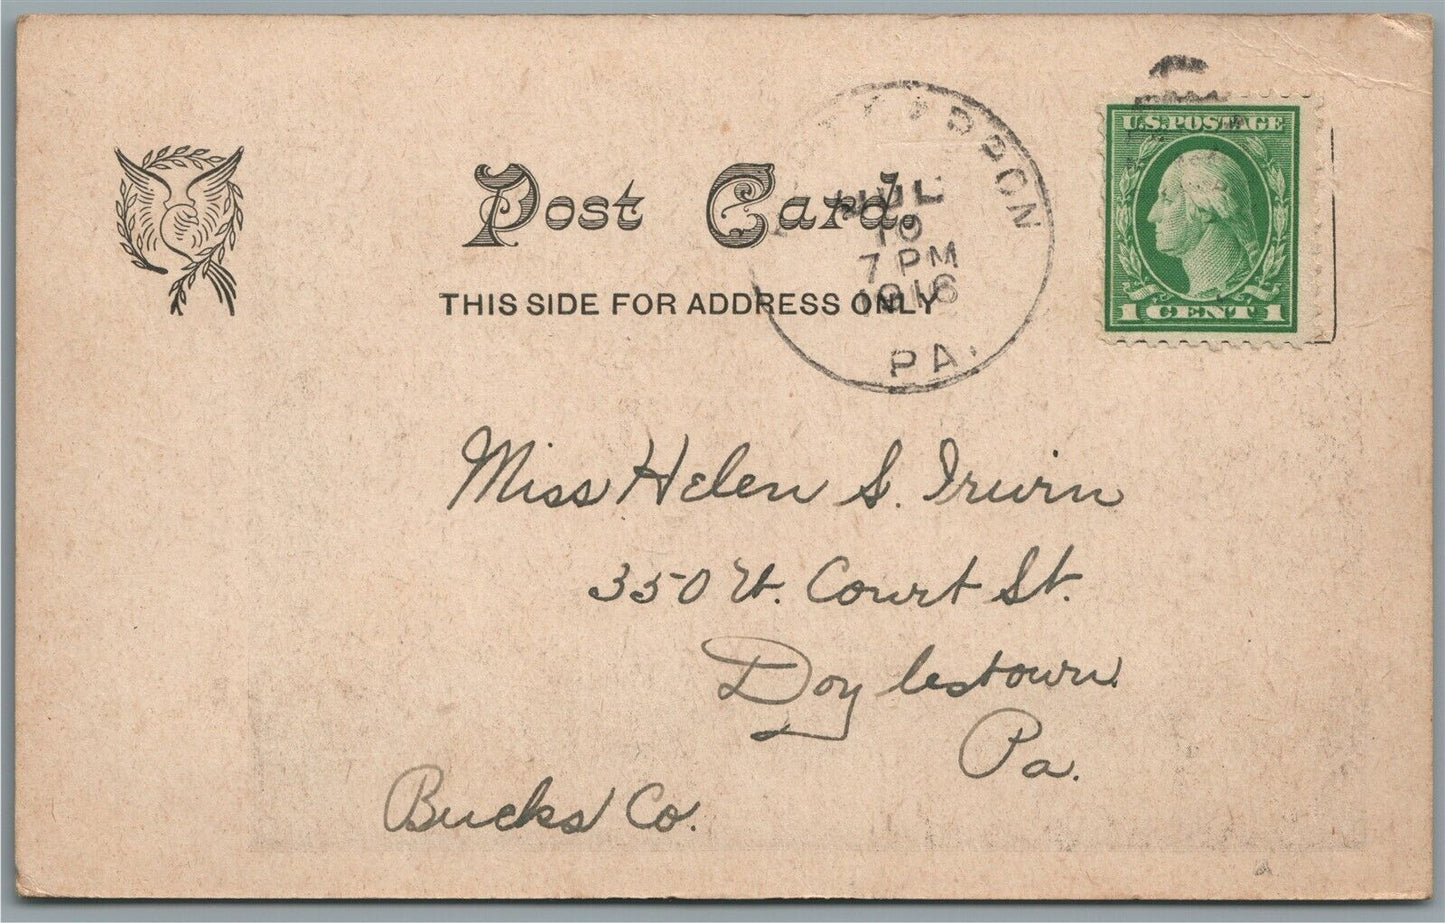 Post Card.
THIS SIDE FOR ADDRESS ONLY
JUL
10
7 PM
1916
PA.
U.S. POSTAGE
1 CENT 1
Miss Helen S. Irwin
350 W. Court St.
Doylestown
Pa.
Bucks Co.